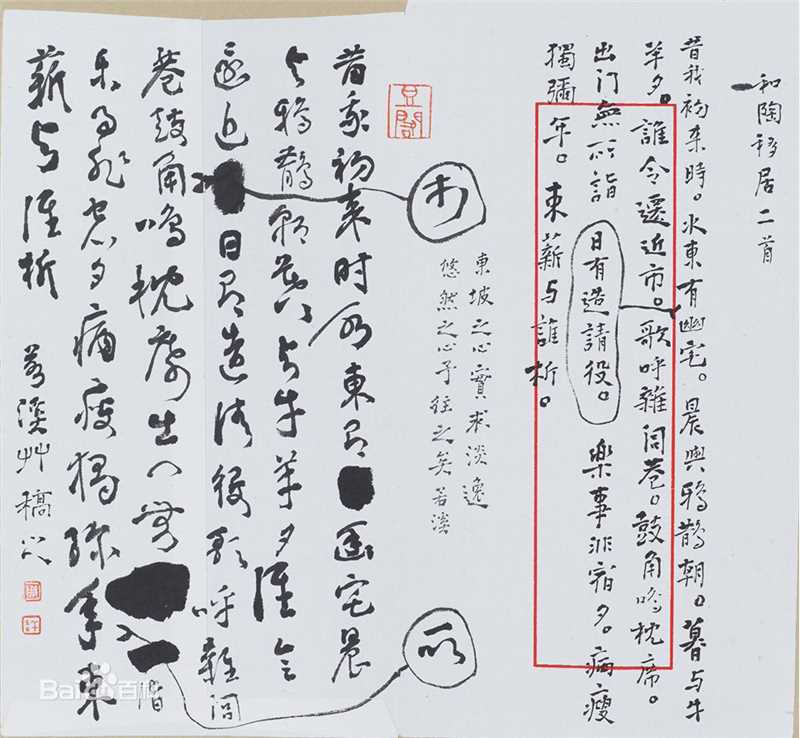 和陶移居二首
昔我初来時。水東有幽宅。晨與鴉鵲朝。暮与牛
羊夕。誰令遷近市。歌呼雜闾巷。鼓角鳴枕席。
出门無所詣 日有造請役。樂事非宿夕。病瘦
獨彌年。束薪与誰析。
東坡之心實求淡逸
悠然之心予往之矣若溪
市
所
昔我初来时水東有幽宅晨
与鴉鵲朝暮与牛羊夕谁令
遷近日有造请役歌呼雜闾
巷鼓角鳴枕席出门無詣
樂事非宿夕病瘦獨彌年束
薪与谁析
若溪艸稿
Baidu百科